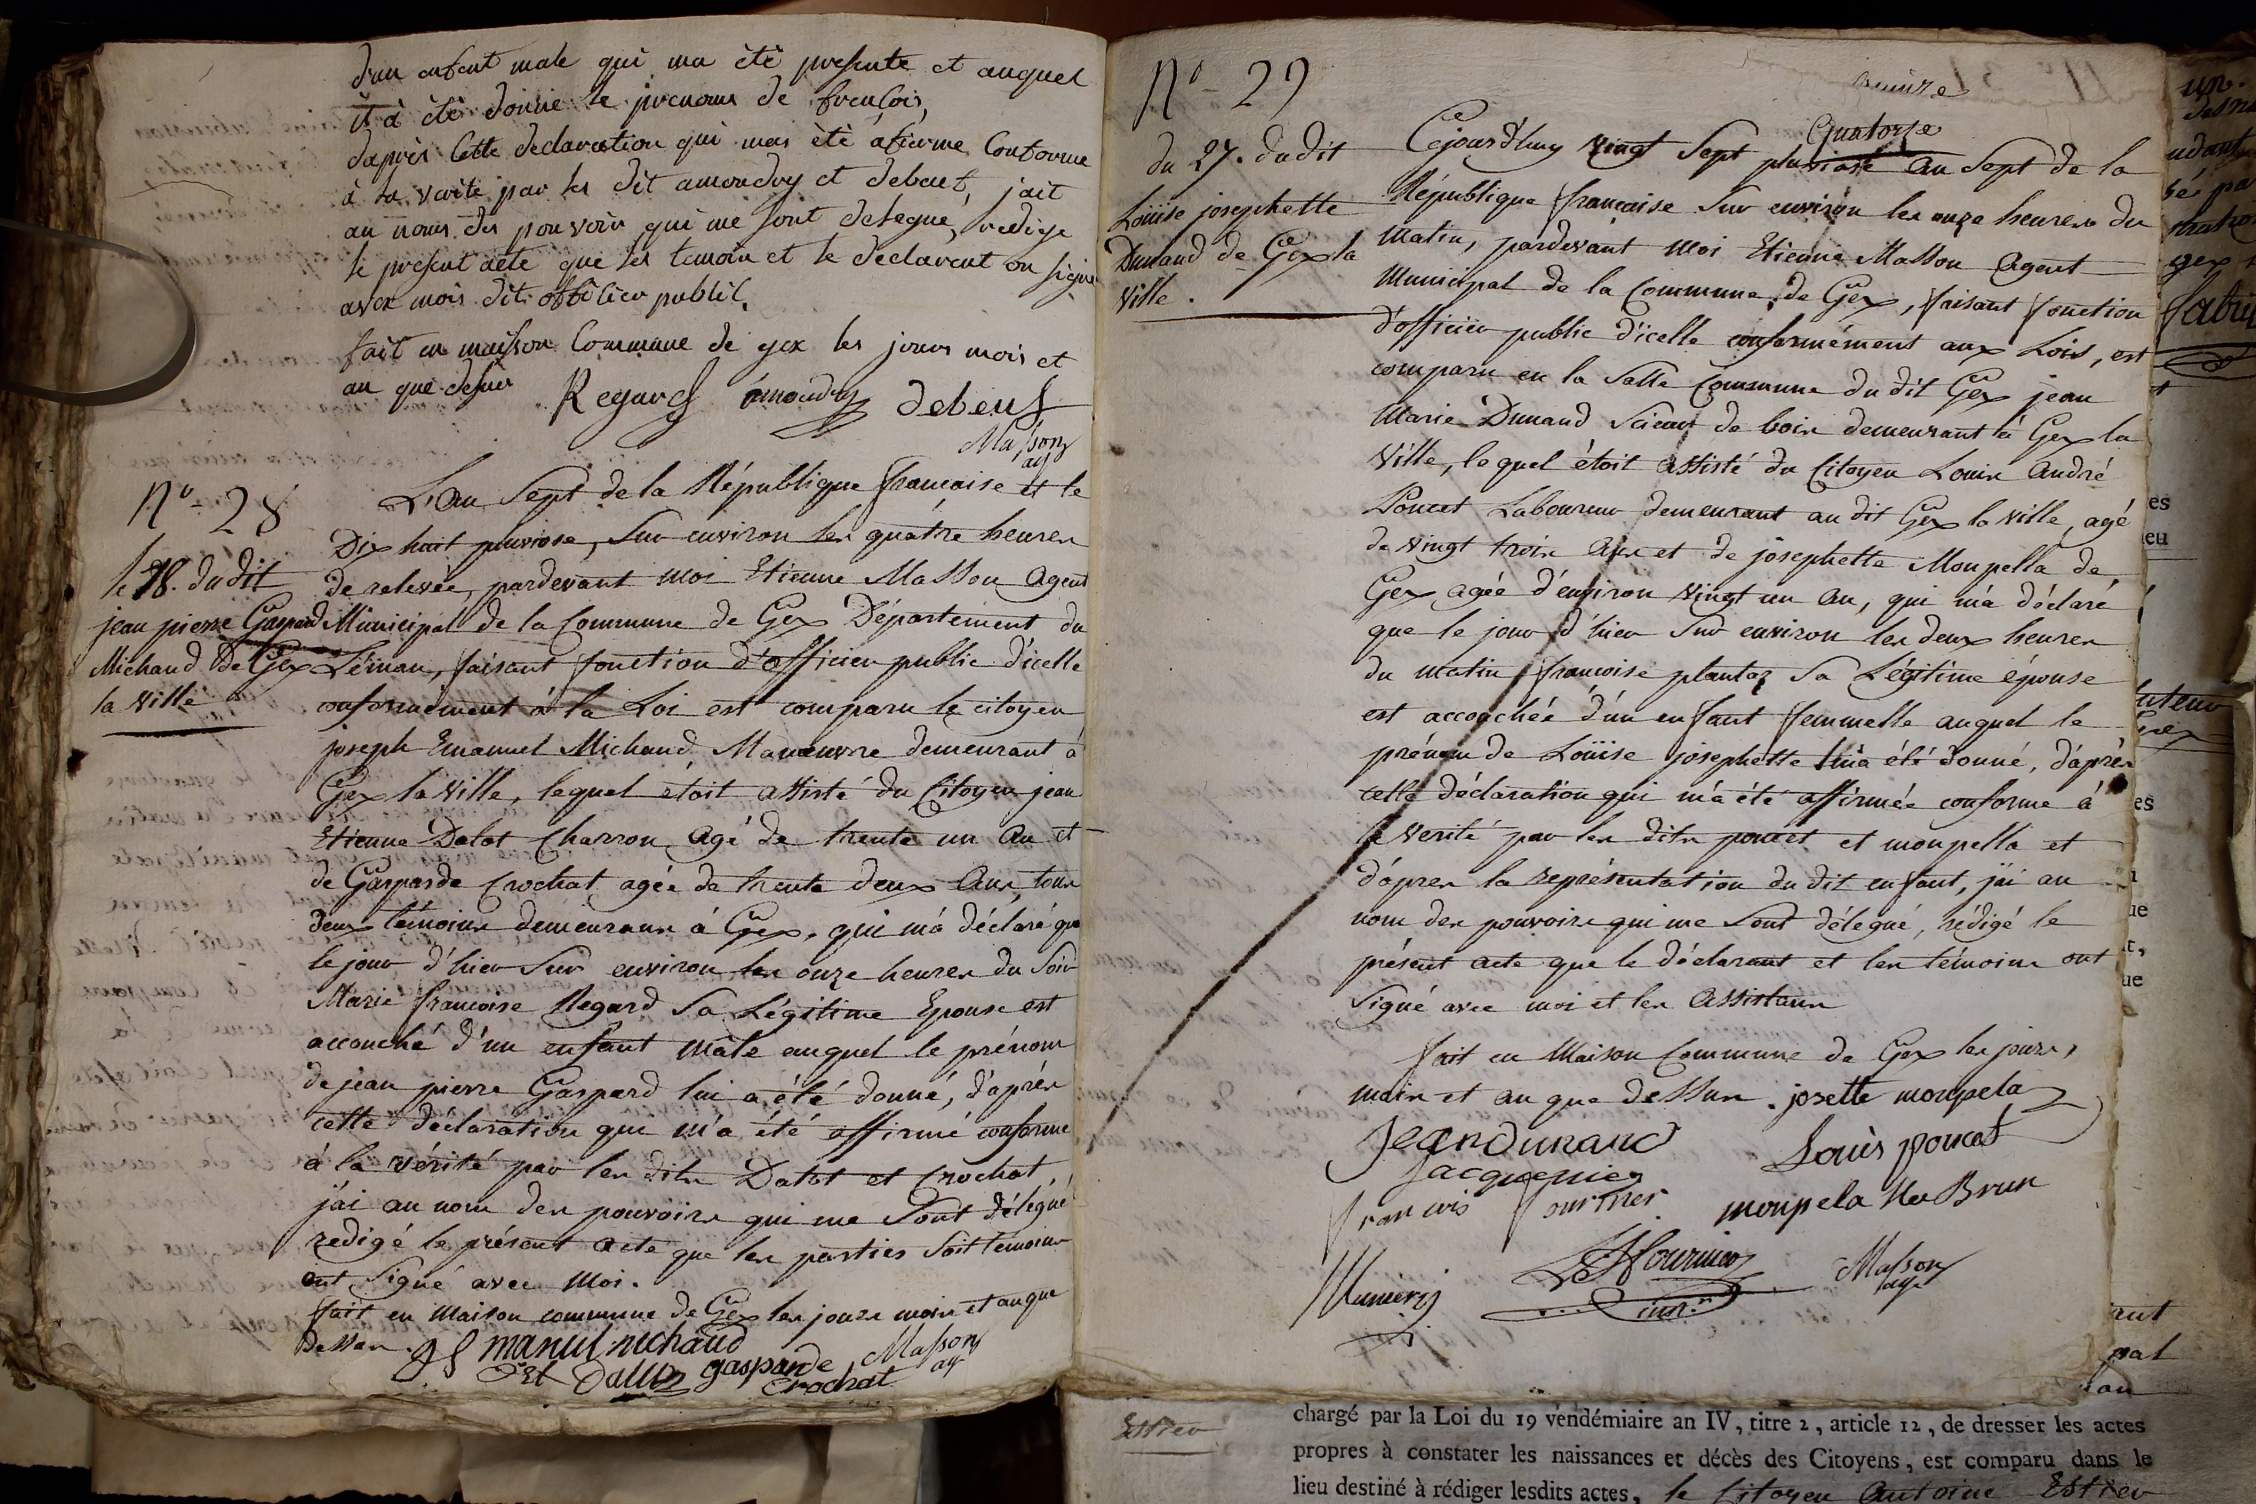 d'un enfent male qui ma étè presenté et auquel
il à étè donné le prenoms de françois,
daprès cette declaration qui mas étè afirmé Conforme
à la verité par les dit amoudry et debeuf, jait
au noms des pouvoir qui me sont delegué, redigé
le present acte que les temoin et le déclarent on signé
avex mois dit officier public,
fait en maisson Commune de gex les jours mois et
an que desus
Regard amoudry debeuf
Masson
ag
N° 28
le 18. du dit
jean pierre Gaspard
Michaud de Gex
la ville
L'An Sept de la République francaise et le
Dix huit pluviose, sur environ les quatre heures
de relevée, pardevant moi Etienne Masson Agent
Municipal de la Commune de Gex Département du
Léman, faisant fonction d'officier public d'icelle
conformément à la Loi est comparu le citoyen
joseph Emanuel Michaud Manœuvre demeurant à
Gex la Ville, lequel étoit assisté du Citoyen jean
Etienne Dalot Charron agé de trente un an et
de Gasparde Crochat agée de trente deux ans, tous
deux témoins demeurans à Gex, qui m'a déclaré que
le jour d'hier sur environ les onze heures du soir
Marie francoise Regard sa Légitime Epouse est
accouché d'un enfant mâle auquel le prénom
de jean pierre Gaspard lui a été donné, d'aprés
cette déclaration qui m'a été affirmé conforme
à la vérité par les dits Dalot et Crochat
j'ai au nom des pouvoirs qui me sont délégué
redigé le présent acte que les parties soit témoins
ont signé avec moi.
fait en maison commune de Gex les jours mois et an que
dessus.
manul michaud
gasparde
crochat
Masson
ag
N° 29
du 27. du dit
Loüise josephette
Dunand de Gex la
ville.
Quatorze
Cejourd'huy vingt sept pluviose an sept de la
République francaise sur environ les onze heures du
matin, pardevant moi Etienne Masson Agent
Municipal de la Commune de Gex, faisant fonction
d'officier public d'icelle conformément aux Lois, est
comparu en la Salle Commune du dit Gex jean
Marie Dunand Scieur de bois demeurant à Gex la
Ville, lequel étoit assisté du Citoyen Louis André
Poncet Laboureur demeurant au dit Gex la ville, agé
de vingt trois ans et de josephette Monpella de
Gex agée d'environ vingt un an, qui m'a déclaré
que le jour d'hier sur environ les deux heures
du matin francoise plantaz sa Légitime épouse
est accouchée d'un enfant femmelle auquel le
prénom de Loüise josephette lui a été donné, d'après
cette déclaration qui m'a été affirmée conforme à
la verité par les dits poncet et monpella et
d'après la représentation du dit enfant, j'ai au
nom des pouvoirs qui me sont délegué, rédigé le
présent acte que le déclarant et les témoins ont
signé avec moi et les Assistans
fait en Maison Commune de Gex les jours,
mois et an que dessus.
josette monpela
Jean Dunand
Louis poncet
Jacquenier
francois fournier
monpela née Brun
Masson
ag
fournier
chargé par la Loi du 19 vendémiaire an IV, titre 2, article 12, de dresser les actes
propres à constater les naissances et décès des Citoyens, est comparu dans le
lieu destiné à rédiger lesdits actes, le Citoyen Antoine Estier
Estier